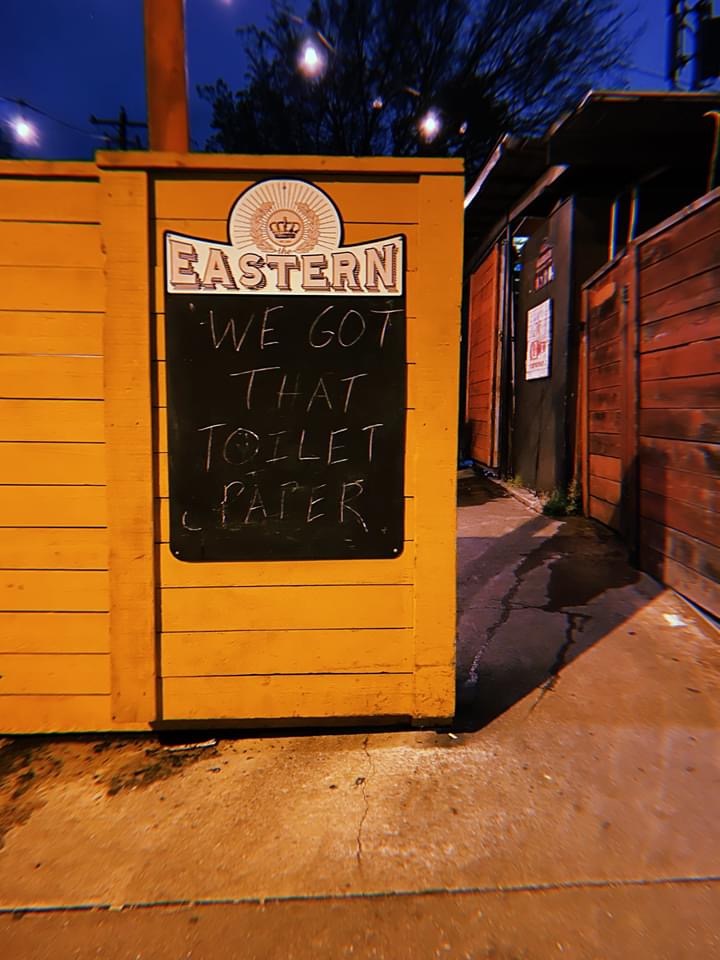 the
EASTERN
WE GOT
THAT
TOILET
PAPER